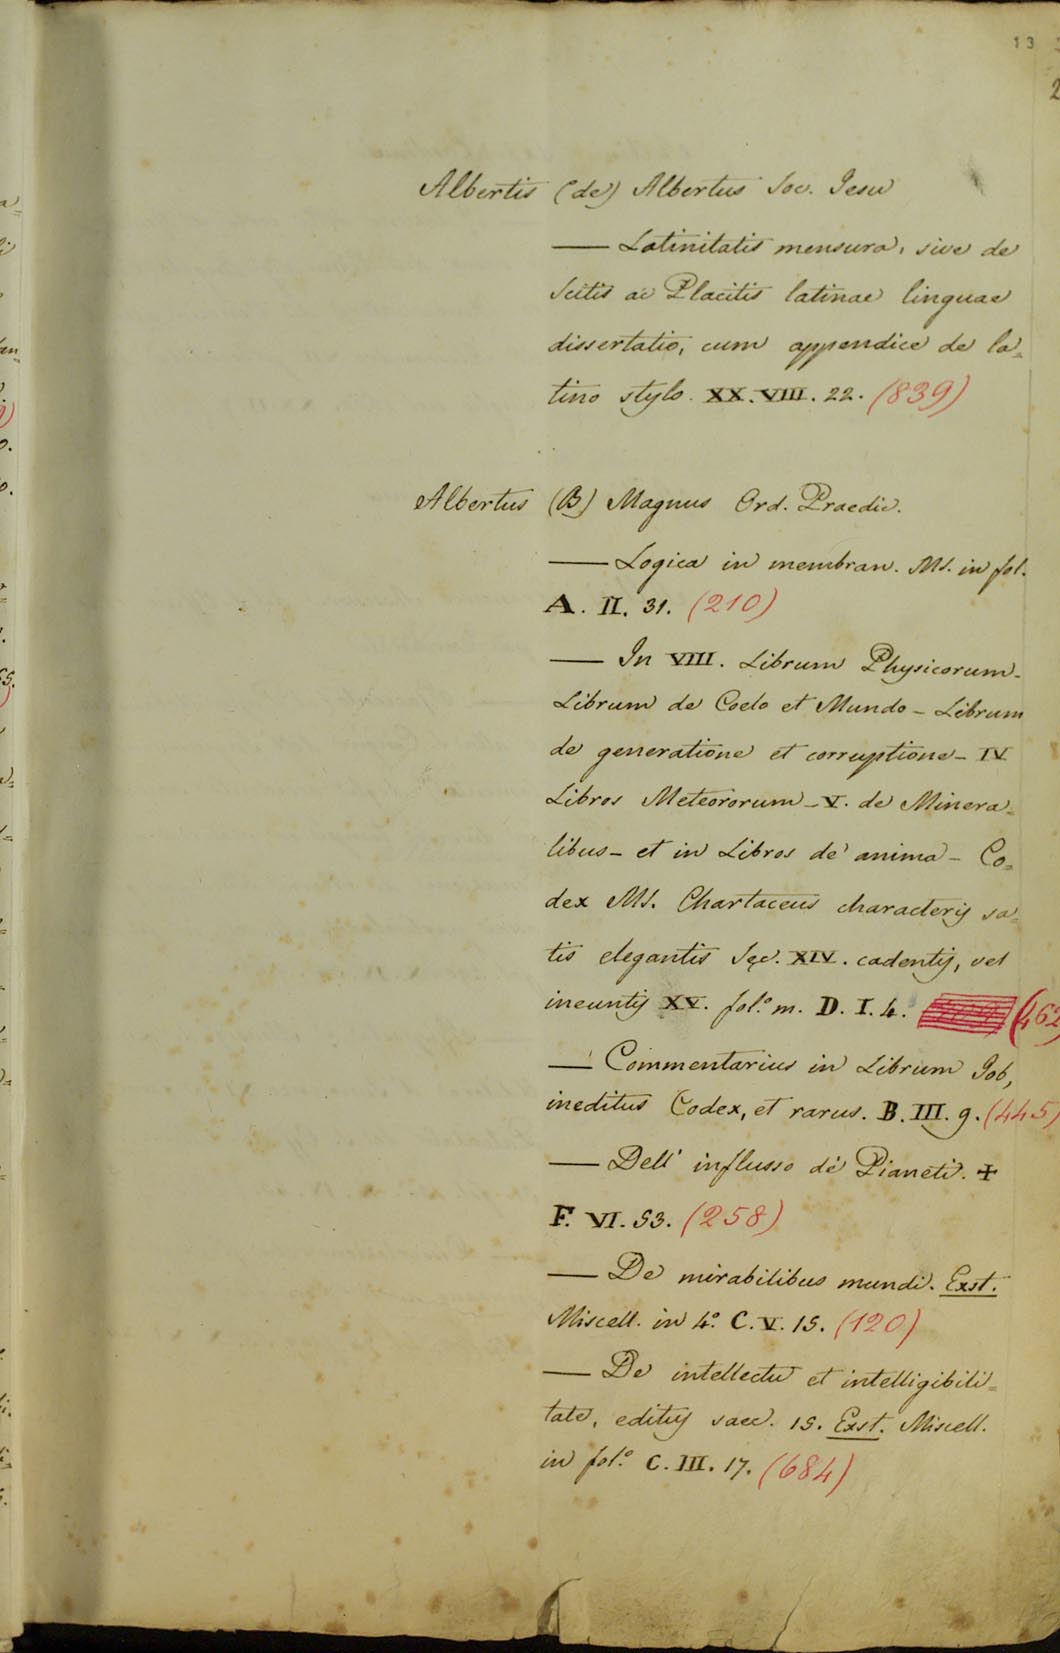 13
2
Albertis (de) Albertus Soc. Jesu
— Latinitatis mensura, sive de
Scitis ac Placitis latinae linguae
dissertatio, cum appendice de la=
tino stylo. XX. VIII. 22. (839)
Albertus (B) Magnus Ord. Praedic.
— Logica in membran. MS. in fol.
A. II. 31. (210)
— In VIII. Librum Physicorum –
Librum de Coelo et Mundo – Librum
de generatione et corruptione – IV
Libros Meteororum – V. de Minera=
libus – et in Libros de anima – Co=
dex MS. Chartaceus characterij sa=
tis elegantis Sęc. XIV. cadentij, vel
ineuntij XV. fol.º m. D. I. 4. (462)
— Commentarius in Librum Job,
ineditus Codex, et rarus. B. III. 9. (445)
— Dell' influsso de' Pianeti. +
F. VI. 53. (258)
— De mirabilibus mundi. Exst.
Miscell. in 4.º C. V. 15. (120)
— De intellectu et intelligibili=
tate, editij saec. 15. Exst. Miscell.
in fol.º C. III. 17. (684)